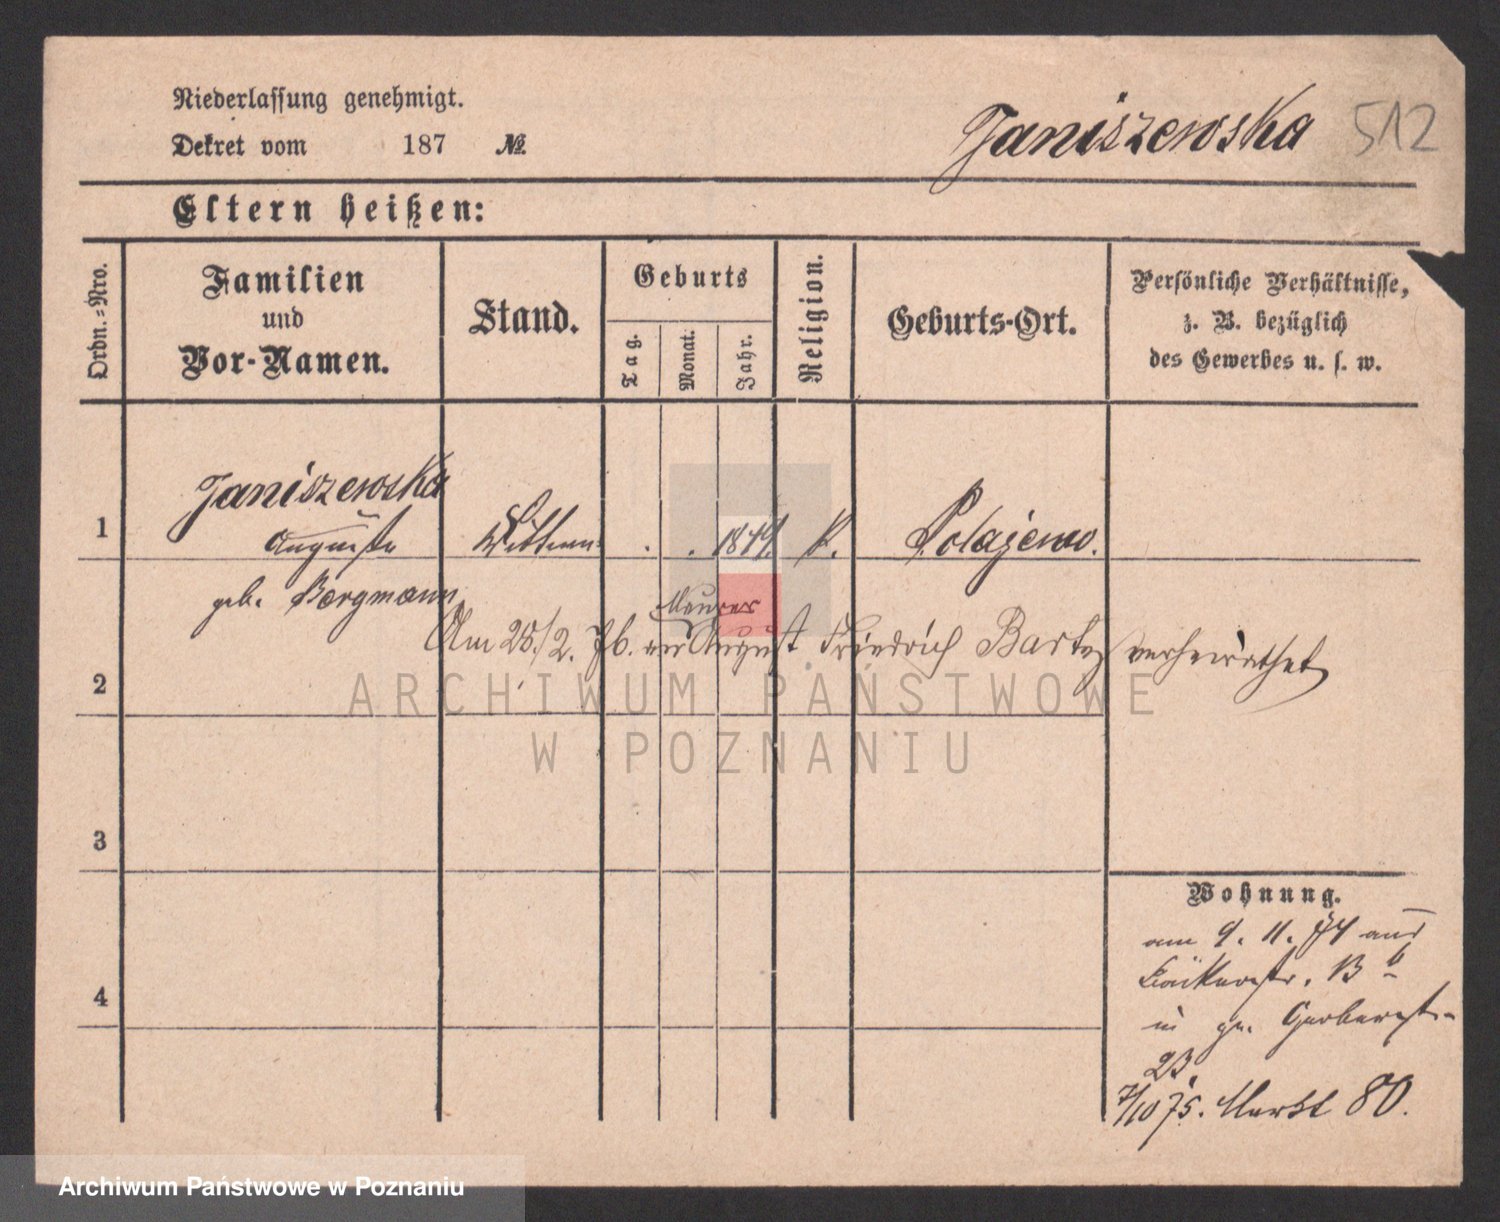 Niederlassung genehmigt.
Dekret vom 187 №
Janiszewska 512
Eltern heißen:
Ordn.-Nro.
Familien
und
Vor-Namen.
Stand.
Geburts
Tag.
Monat.
Jahr.
Religion.
Geburts-Ort.
Persönliche Verhältnisse,
z. B. bezüglich
des Gewerbes u. s. w.
Janiszewska
1 Auguste . . 1849. k. Polajewo.
geb. Bergmann
Maurer
Am 25./2. 76. August Friedrich Bartz verheirathet
2
3
4
Wohnung.
am 9. 11. 74 aus
Bäckerstr. 13 b
in gr. Gerberstr.
23.
7/10 75. Markt 80.
ARCHIWUM PAŃSTWOWE
W POZNANIU
Archiwum Państwowe w Poznaniu